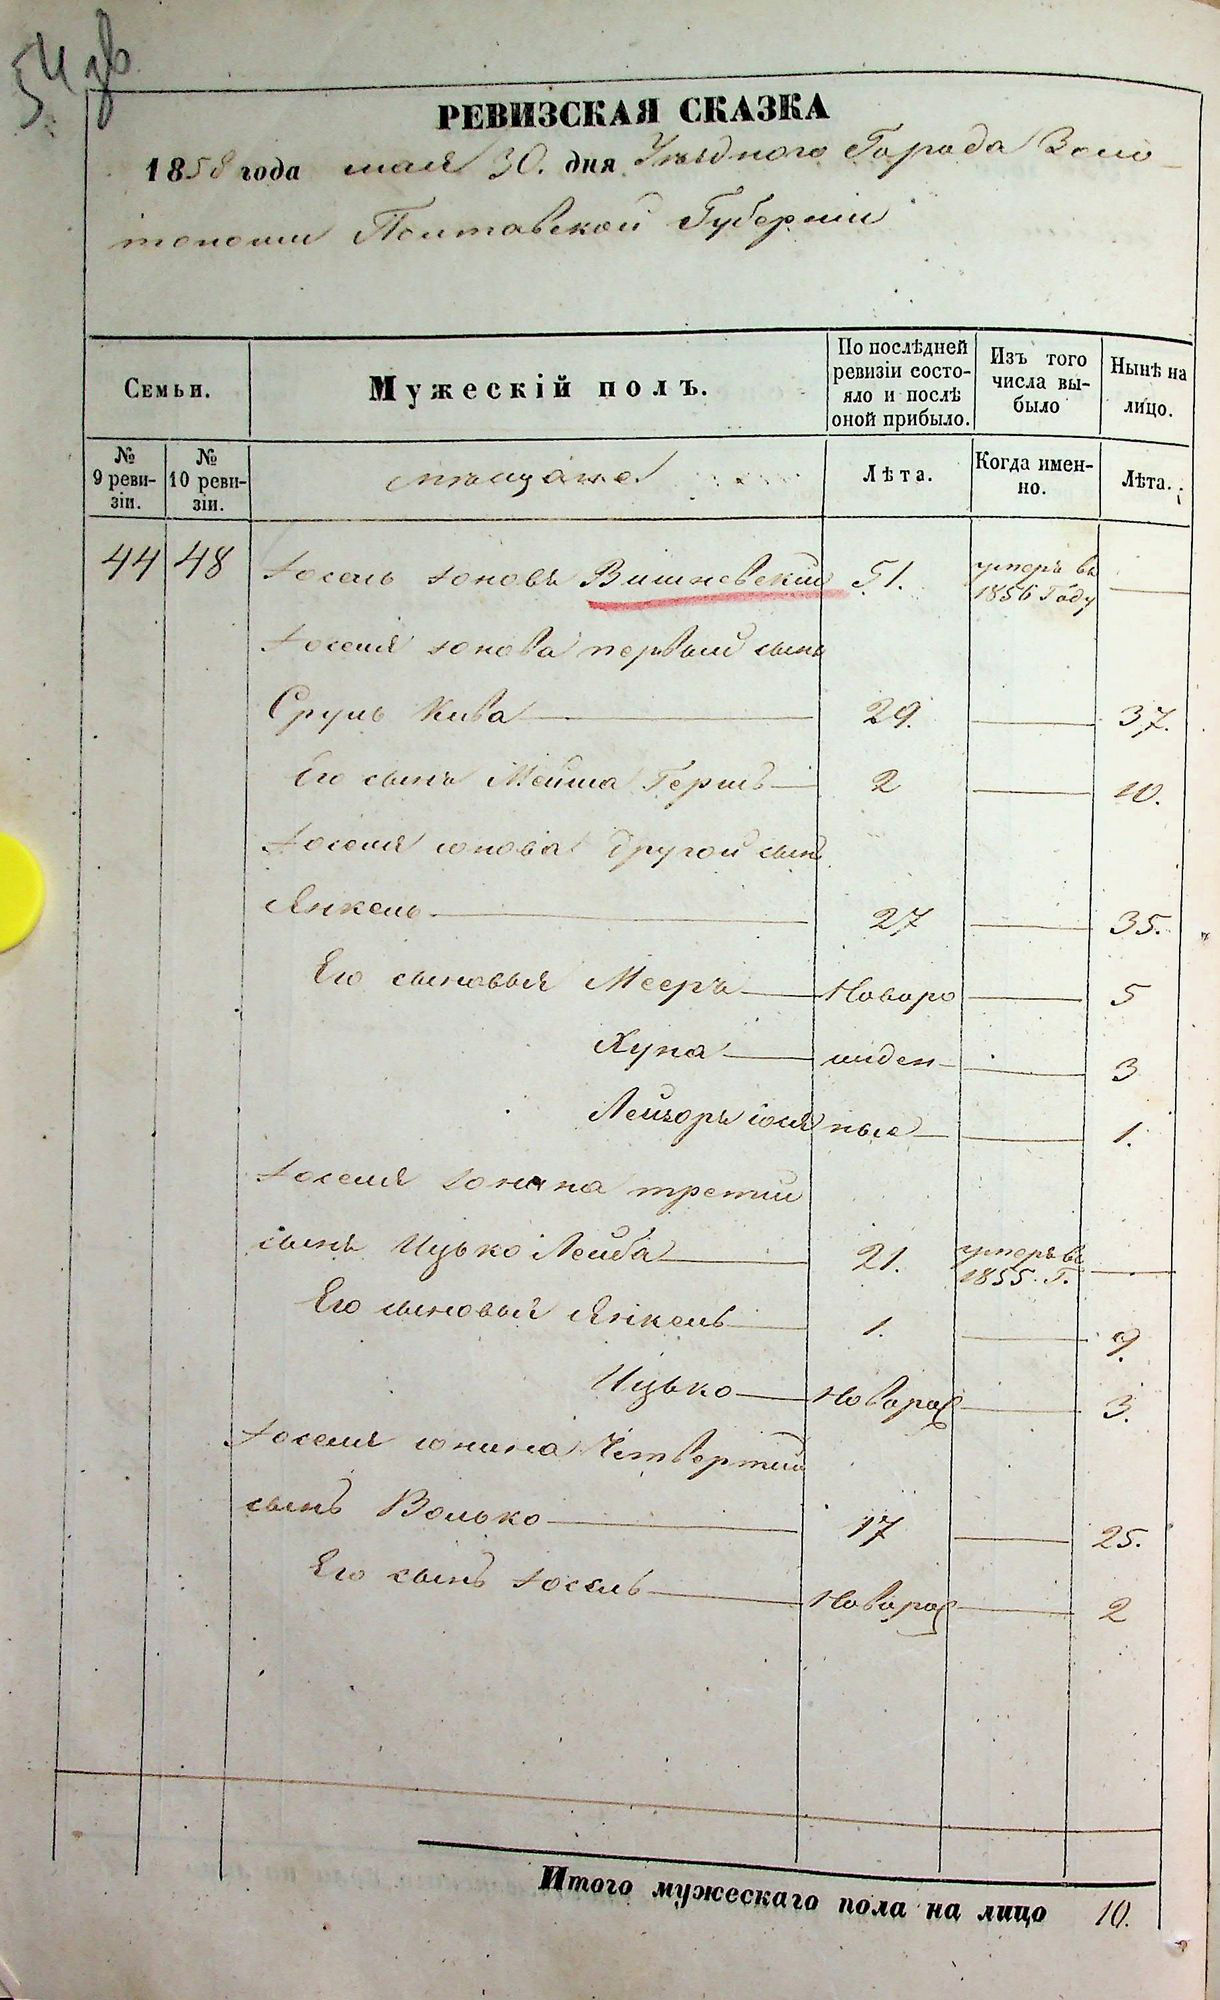 54 зв
РЕВИЗСКАЯ СКАЗКА
1858 года мая 30. дня Уѣзднаго Города Золо-
тоноши Полтавской Губерніи
Семьи.
Мужескій полъ.
По послѣдней ревизіи состояло и послѣ оной прибыло.
Изъ того числа выбыло
Нынѣ на лицо.
№ 9 ревизіи.
№ 10 ревизіи.
мѣщане
Лѣта.
Когда именно.
Лѣта.
44 48 Іосель Іоновъ Вишневскій 51. умеръ въ 1856 Году
Іоселя Іонова первый сынъ
Сруль Кива 29. 37.
Его сынъ Мейша Гершъ 2 10.
Іоселя Іонова другой сынъ
Янкель 27 35.
Его сыновья Мееръ Новоро 5
Хуна жден 3
Лейзоръ ные 1.
Іоселя Іонина третій
сынъ Ицько Лейба 21. умеръ въ 1855 Г.
Его сыновья Янкель 1. 9.
Ицько Новорож 3.
Іоселя Іонина Четвертій
сынъ Волько 17 25.
Его сынъ Іосель Новорож 2
Итого мужескаго пола на лицо 10.